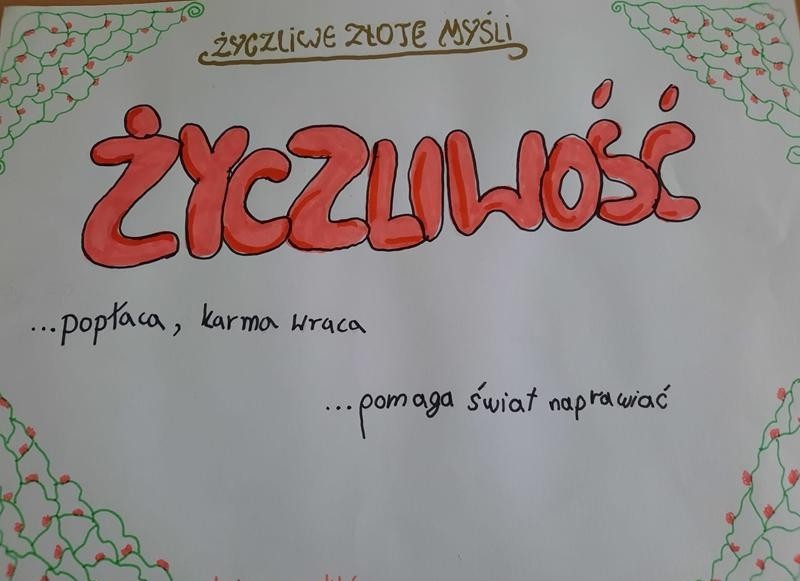 ŻYCZLIWE ZŁOTE MYŚLI
ŻYCZLIWOŚĆ
...popłaca, karma wraca
...pomaga świat naprawiać